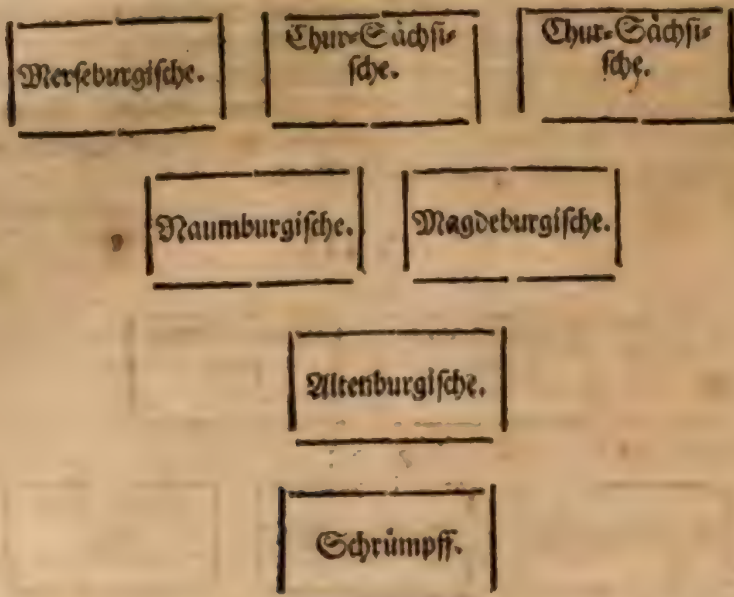 Merseburgische.
Chur-Sächsi-
sche.
Chur-Sächsi-
sche.
Naumburgische.
Magdeburgische.
Altenburgische.
Schrümpff.